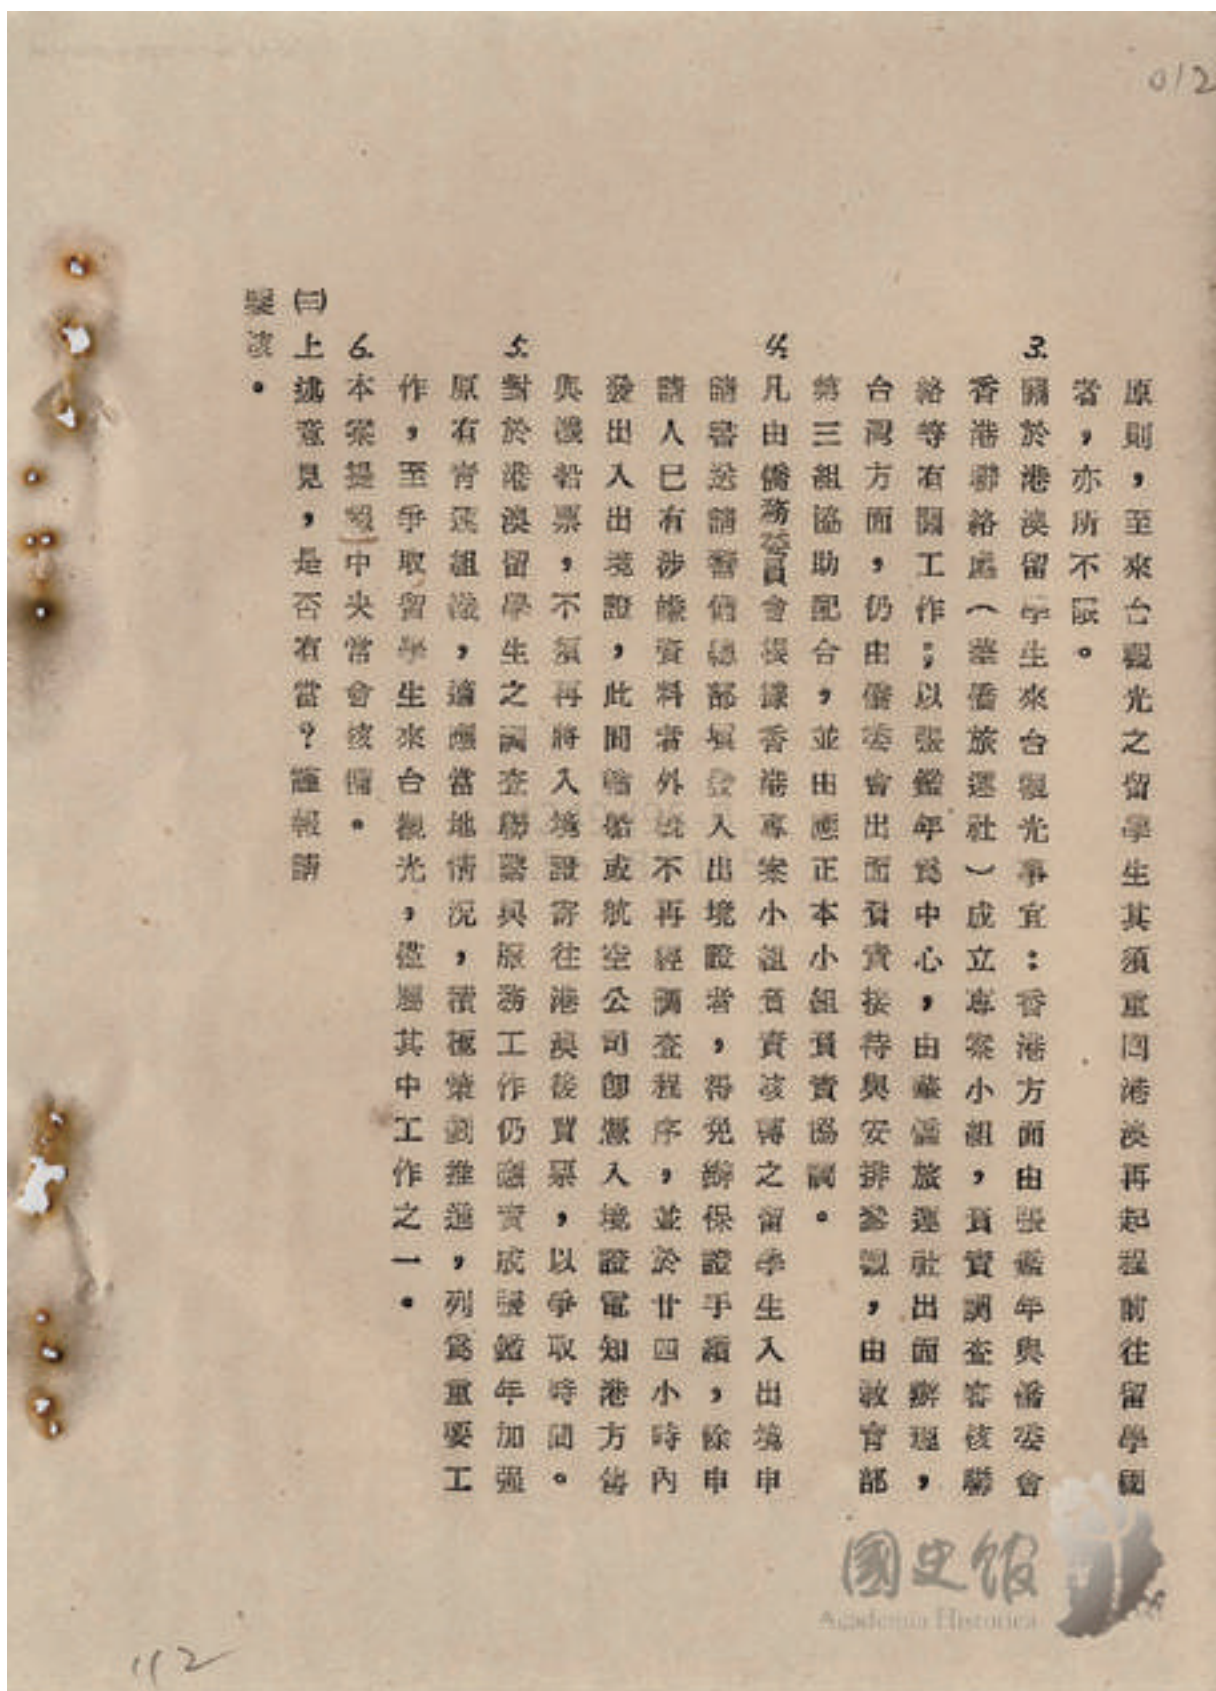 012
原則，至來台觀光之留學生其須重回港澳再起程前往留學國
者，亦所不限。
3. 關於港澳留學生來台觀光事宜：香港方面由張鑑年與僑委會
香港聯絡處（華僑旅運社）成立專案小組，負責調查審核聯
絡等有關工作；以張鑑年為中心，由華僑旅運社出面辦理，
台灣方面，仍由僑委會出面負責接待與安排參觀，由教育部
第三組協助配合，並由應正本小組負責協調。
4. 凡由僑務委員會根據香港專案小組負責核轉之留學生入出境申
請書送請警備總部填發入出境證者，得免辦保證手續，除申
請人已有涉嫌資料者外 不再經調查程序，並於廿四小時內
發出入出境證，此間輪船或航空公司即憑入境證電知港方售
與機船票，不須再將入境證寄往港澳後買票，以爭取時間。
5. 對於港澳留學生之調查聯繫與服務工作仍應責成張鑑年加强
原有青運組織，適應當地情況，積極策劃推進，列為重要工
作，至爭取留學生來台觀光，僅屬其中工作之一。
6. 本案提報中央常會核備。
㈢上述意見，是否有當？謹報請
鑒核。
國史館
Academia Historica
112